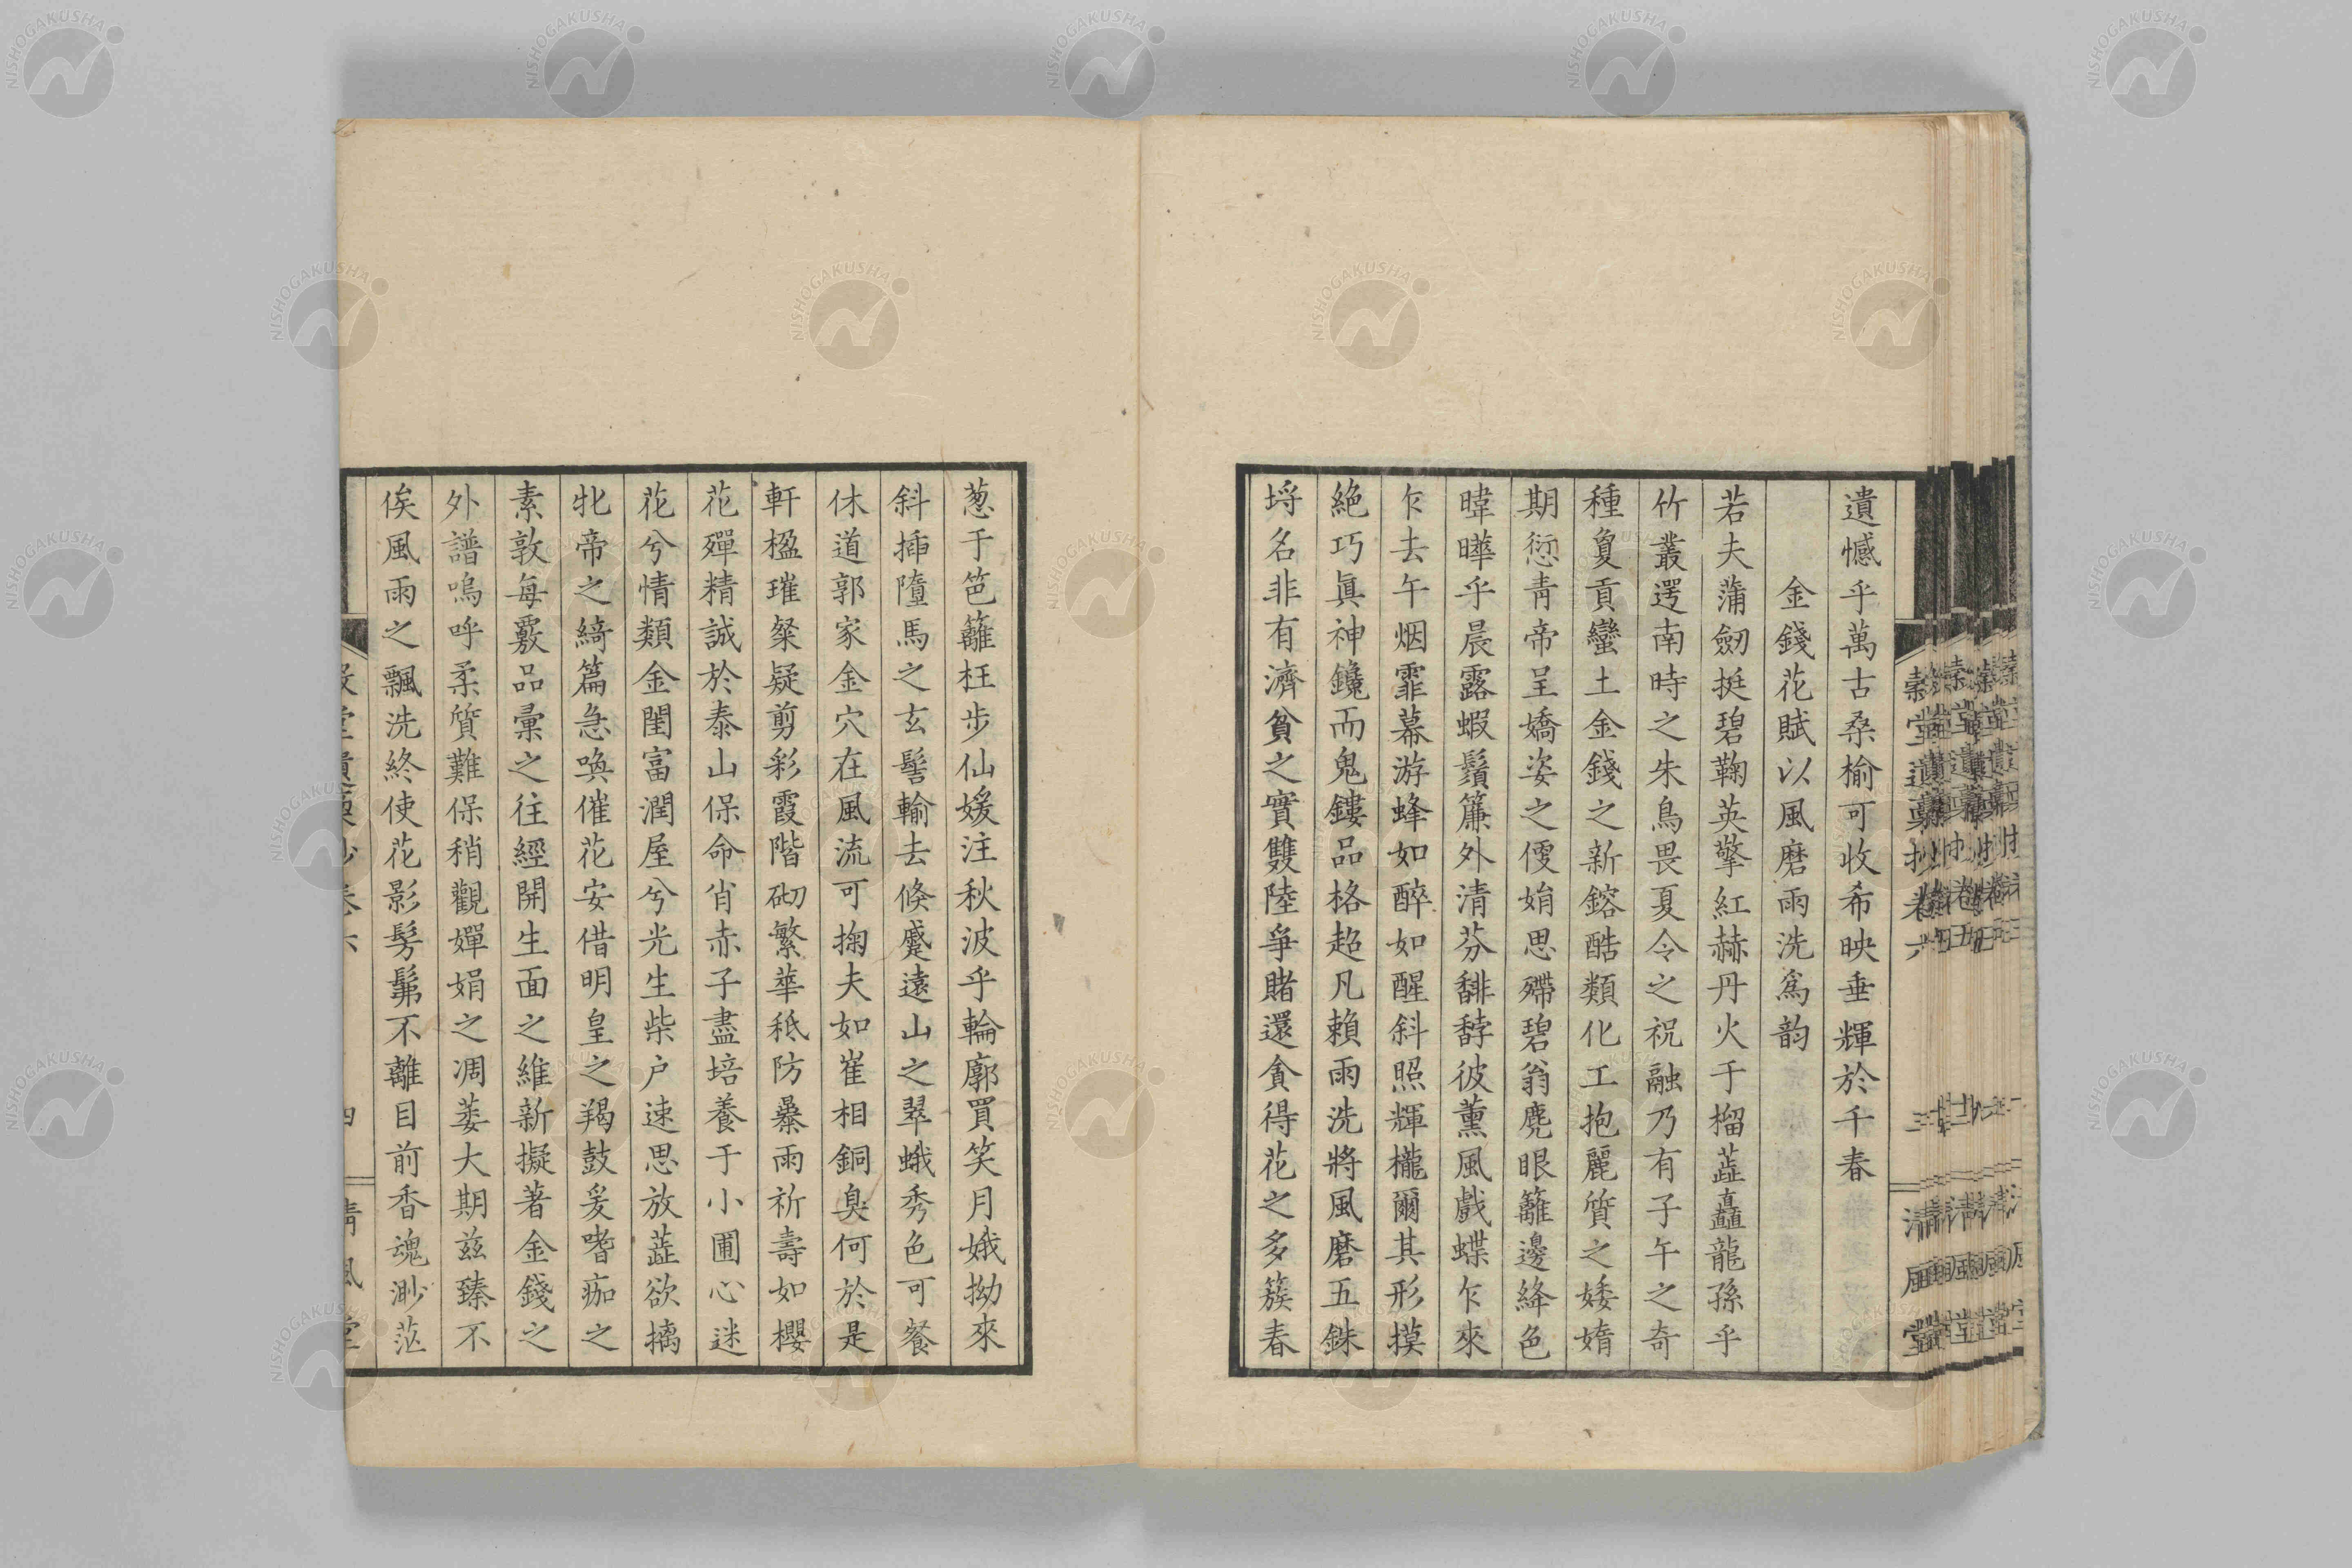 遺憾乎萬古桑榆可收希映垂輝於千春
金錢花賦以風磨雨洗爲韵
若夫蒲劒挺碧鞠英擎紅赫丹火于榴蕋矗龍孫乎
竹叢遌南時之朱鳥畏夏令之祝融乃有子午之奇
種夐貢蠻土金錢之新鎔酷類化工抱麗質之婑媠
期愆靑帝呈嬌姿之㛹娟思殢碧翁麂眼籬邊絳色
暐曄乎晨露蝦鬚簾外清芬馡馞彼薫風戲蝶乍來
乍去午烟霏幕游蜂如醉如醒斜照輝櫳爾其形摸
絶巧眞神鑱而鬼鏤品格超凡賴雨洗將風磨五銖
埒名非有濟貧之實雙陸爭賭還貪得花之多簇春
葱于笆籬枉步仙媛注秋波乎輪廓買笑月娥拗來
斜插墮馬之玄髻輸去倏蹙遠山之翠蛾秀色可餐
休道郭家金穴在風流可掬夫如崔相銅臭何於是
軒楹璀粲疑剪彩霞階砌繁華秪防暴雨祈壽如櫻
花殫精誠於泰山保命肖赤子盡培養于小圃心迷
花兮情類金閨富潤屋兮光生柴户速思放蕋欲摛
牝帝之綺篇急喚催花安借明皇之羯鼓爰嗜痂之
素敦每覈品彙之往經開生面之維新擬著金錢之
外譜嗚呼柔質難保稍觀嬋娟之凋萎大期茲臻不
俟風雨之飄洗終使花影髣髴不離目前香魂渺茫
清風堂